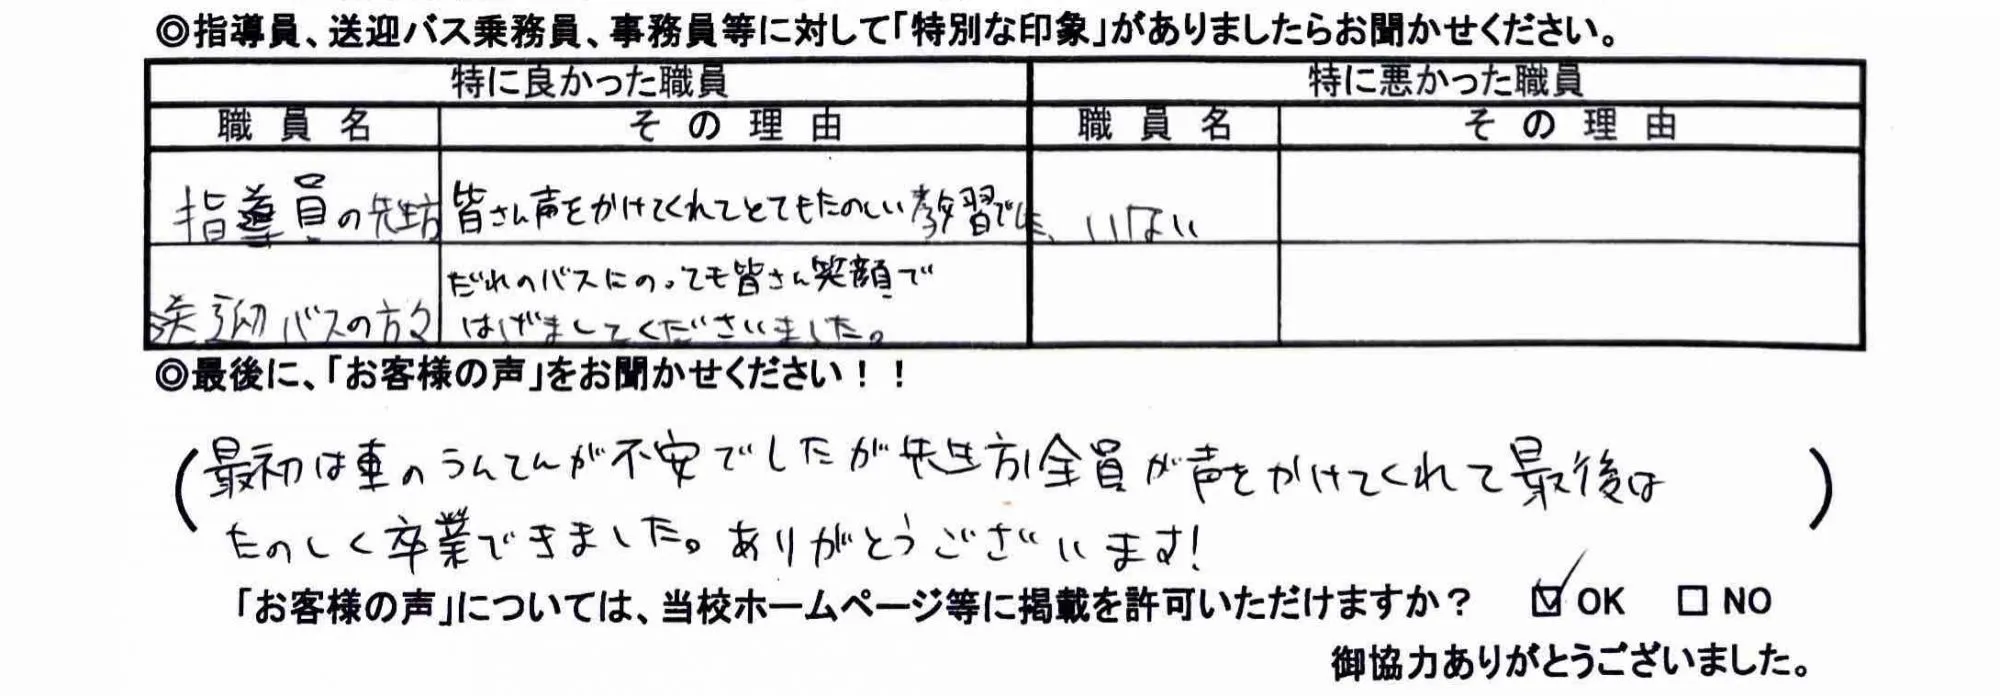 ◎指導員、送迎バス乗務員、事務員等に対して「特別な印象」がありましたらお聞かせください。
特に良かった職員 特に悪かった職員
職員名 その理由 職員名 その理由
指導員の先生方 皆さん声をかけてくれてとてもたのしい教習でした、 いない
だれのバスにのっても皆さん笑顔で
送迎バスの方々 はげましてくださいました。
◎最後に、「お客様の声」をお聞かせください！！
(最初は車のうんてんが不安でしたが先生方全員が声をかけてくれて最後は
たのしく卒業できました。ありがとうございます!)
「お客様の声」については、当校ホームページ等に掲載を許可いただけますか？ ☑ OK □ NO
御協力ありがとうございました。